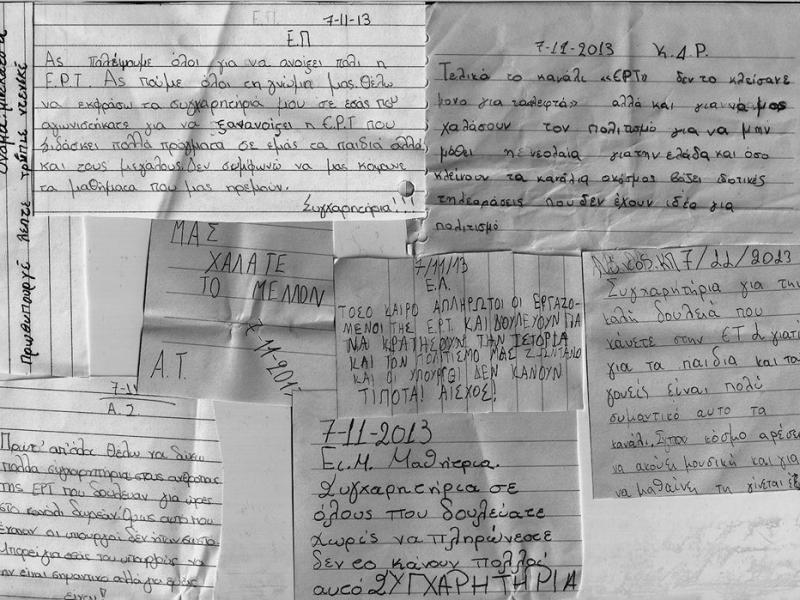 Ε.Π 7-11-13
Ε.Π
Ας παλέψουμε όλοι για να ανοίξει πάλι η
Ε.Ρ.Τ. Ας πούμε όλοι τη γνώμη μας. Θέλω
να εκφράσω τα συγχαρητήριά μου σε εσάς που
αγωνιστήκατε για να ξανανοίξει η Ε.Ρ.Τ που
διδάσκει πολλά πράγματα σε εμάς τα παιδιά αλλά
και τους μεγάλους. Δεν συμφωνώ να μας κάνουνε
τα μαθήματα που μας ηρεμούν.
Συγχαρητήρια!!!
7-11-2013 Κ.Δ.Ρ.
Τελικά το κανάλι «ΕΡΤ» δεν το κλείσανε
μόνο για τα λεφτά» αλλά και για να μας
χαλάσουν τον πολιτισμό για να μην
μάθει η νεολαία για την ελάδα και όσο
κλείνουν τα κανάλια ο κόσμος βάζει ιδοτικές
τηλεοράσεις που δεν έχουν ιδέα για
πολιτισμό
Πρωθυπουργέ λέπτε τρέπτε ντενεκέ
ΜΑΣ
ΧΑΛΑΤΕ
ΤΟ ΜΕΛΛΟΝ
Α.Τ. 7-11-2013
7/11/13
Ε.Λ.
ΤΟΣΟ ΚΑΙΡΟ ΑΠΛΗΡΩΤΟΙ ΟΙ ΕΡΓΑΖΟ-
ΜΕΝΟΙ ΤΗΣ ΕΡΤ ΚΑΙ ΔΟΥΛΕΥΟΥΝ ΓΙΑ
ΝΑ ΚΡΑΤΗΣΟΥΝ ΤΗΝ ΙΣΤΟΡΙΑ
ΚΑΙ ΤΟΝ ΠΟΛΙΤΙΣΜΟ ΜΑΣ ΖΩΝΤΑΝΟ
ΚΑΙ ΟΙ ΥΠΟΥΡΓΟΙ ΔΕΝ ΚΑΝΟΥΝ
ΤΙΠΟΤΑ! ΑΙΣΧΟΣ!
7/11/2013
Συγχαρητήρια για την
καλή δουλειά που
κάνετε στην ΕΤ1 γιατί
για τα παιδιά και τους
γονείς είναι πολύ
σημαντικό αυτο το
κανάλι. Στον κόσμο αρέσει
να ακούει μουσική και για
να μαθαίνει τη γίνεται
7-11
Α.Σ
Πρώτ' απ'όλα θέλω να δώσω
πολλά συγχαρητήρια στους ανθρώπους
της ΕΡΤ που δούλευαν για ώρες
στο κανάλι δωρεάν. Όμως αυτό που
έκαναν οι υπουργοί δεν ήταν σωστό.
Μπορεί για σας τους υπουργούς να
μην είναι σημαντικό αλλά για εμάς
είναι!
7-11-2013
Ες.Μ. Μαθήτρια.
Συγχαρητήρια σε
όλους που δουλεύατε
χωρίς να πληρώνεστε
δεν το κάνουν πολλοί
αυτό ΣΥΓΧΑΡΗΤΗΡΙΑ